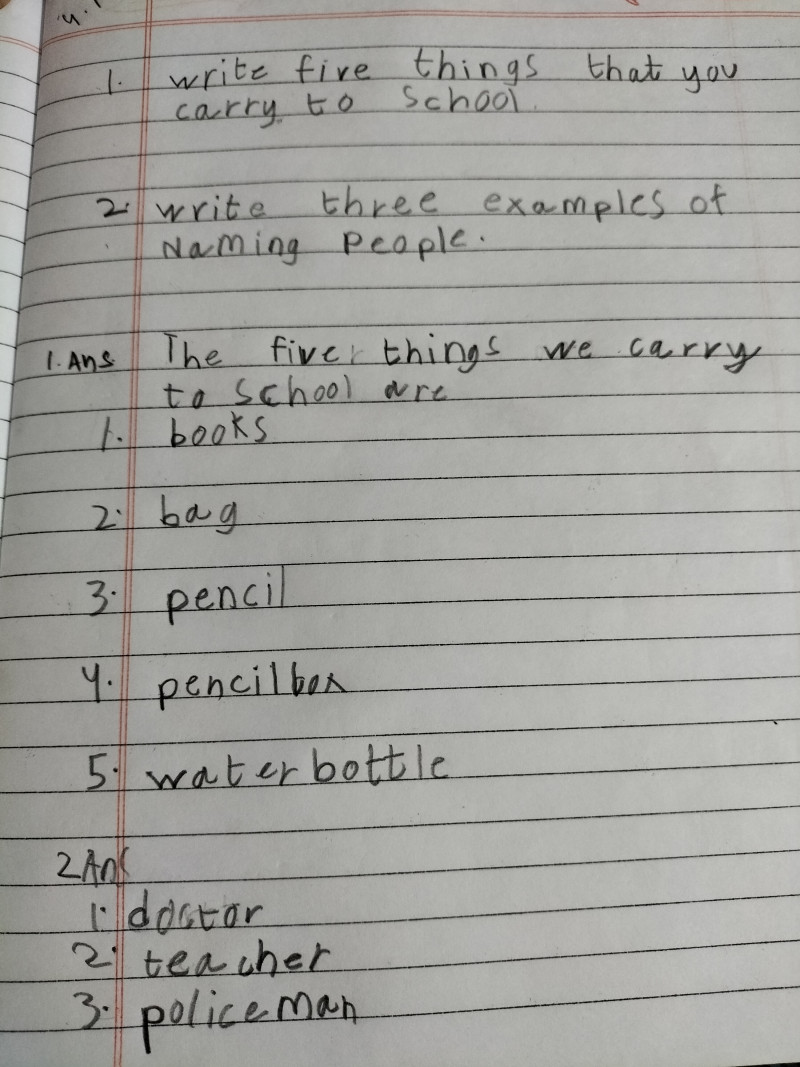 1. write five things that you
carry to school.
2. write three examples of
Naming people.
1. Ans The five things we carry
to school are
1. books
2. bag
3. pencil
4. pencilbox
5. waterbottle
2 Ans
1. doctor
2. teacher
3. policeman